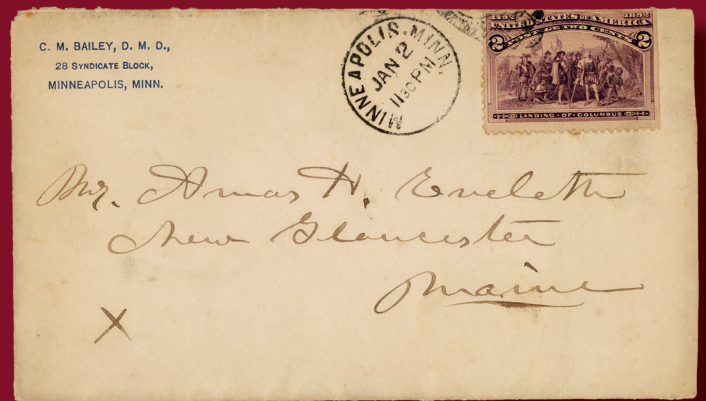 C. M. BAILEY, D. M. D.,
28 SYNDICATE BLOCK,
MINNEAPOLIS, MINN.
MINNEAPOLIS, MINN.
JAN 2
1130 PM
1492 1892
UNITED STATES OF AMERICA
POSTAGE TWO CENTS
2 2
LANDING · OF · COLUMBUS
Mr. Amos H. Eveleth
New Gloucester
Maine
X